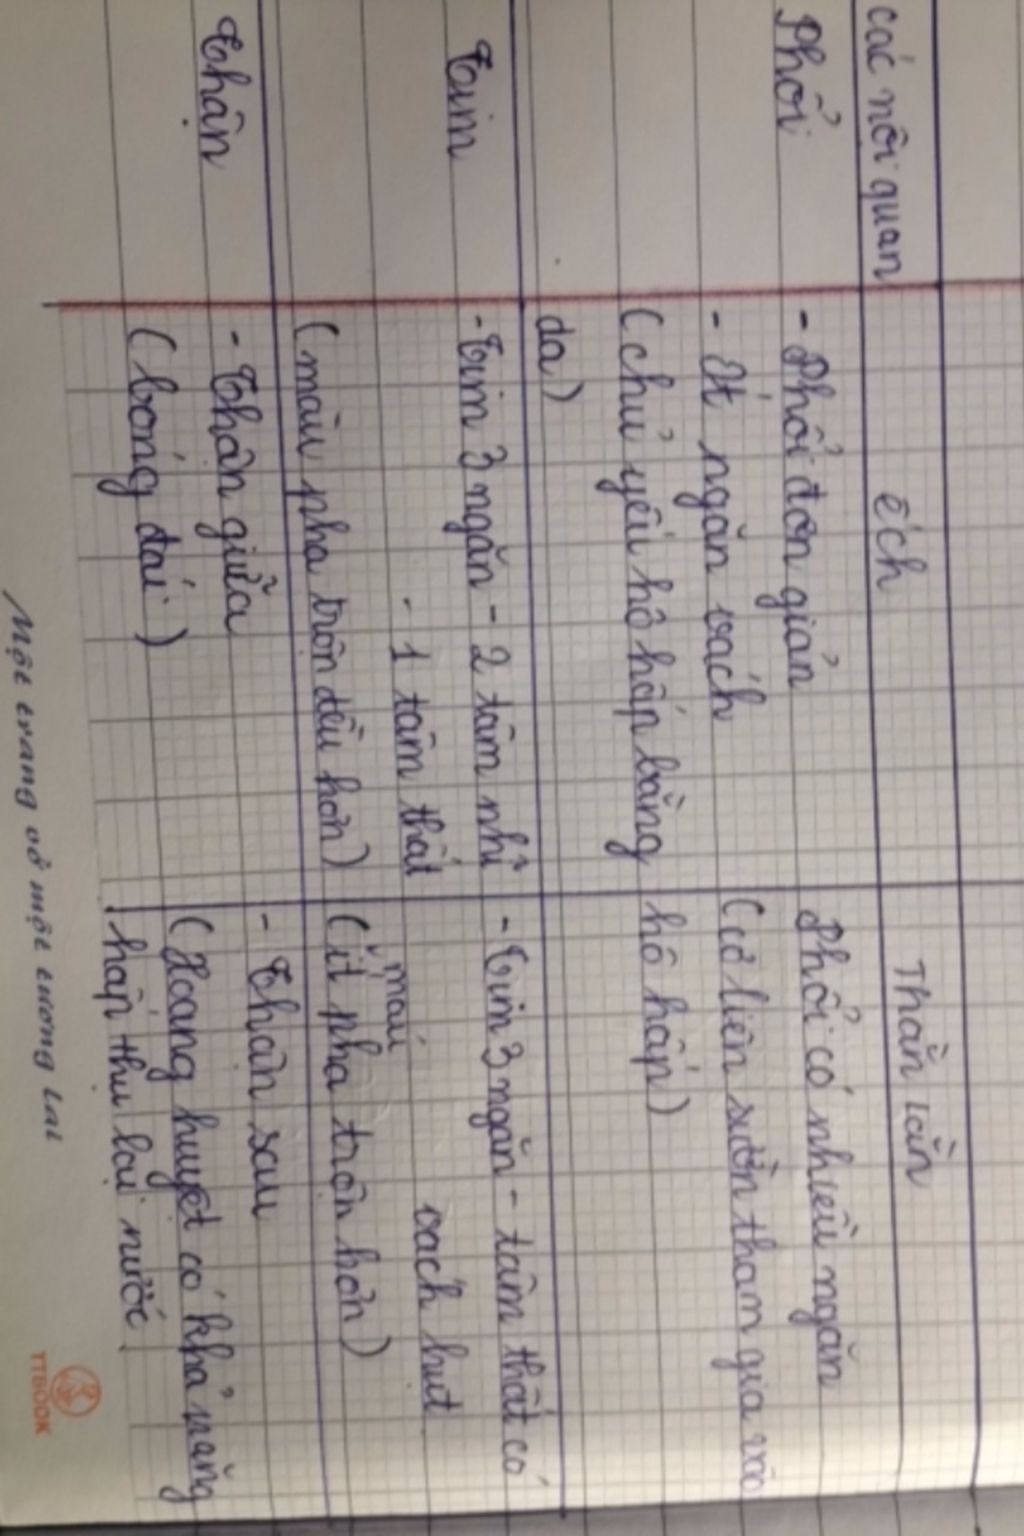 các nội quan ếch Thằn lằn
Phổi - Phổi đơn giản Phổi có nhiều ngăn
- ít ngăn vách (cơ liên sườn tham gia vào
(chủ yếu hô hấp bằng hô hấp)
da)
Tim - Tim 3 ngăn - 2 tâm nhĩ - Tim 3 ngăn - tâm thất có
- 1 tâm thất vách hụt
máu
(máu pha trộn đều hơn) (ít pha trộn hơn)
Thận - Thận giữa - Thận sau
(bóng đái) (Xoang huyệt có khả năng
hấp thu lại nước
Một trang vở một tương lai
TTBOOK